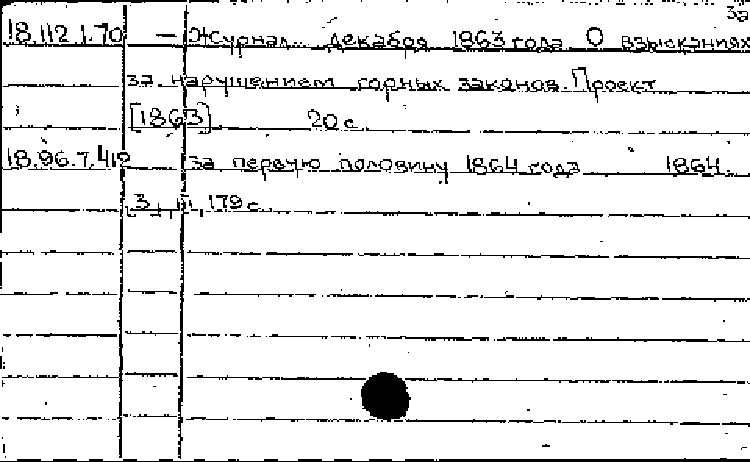 3а
18.112.1.70 — Журнал... декабря 1863 года О взысканиях
за нарушением горных законов. Проект
[1863] 20 с.
18.96.7.419 за первую половину 1864 года 1864.
3, III, 179 с.